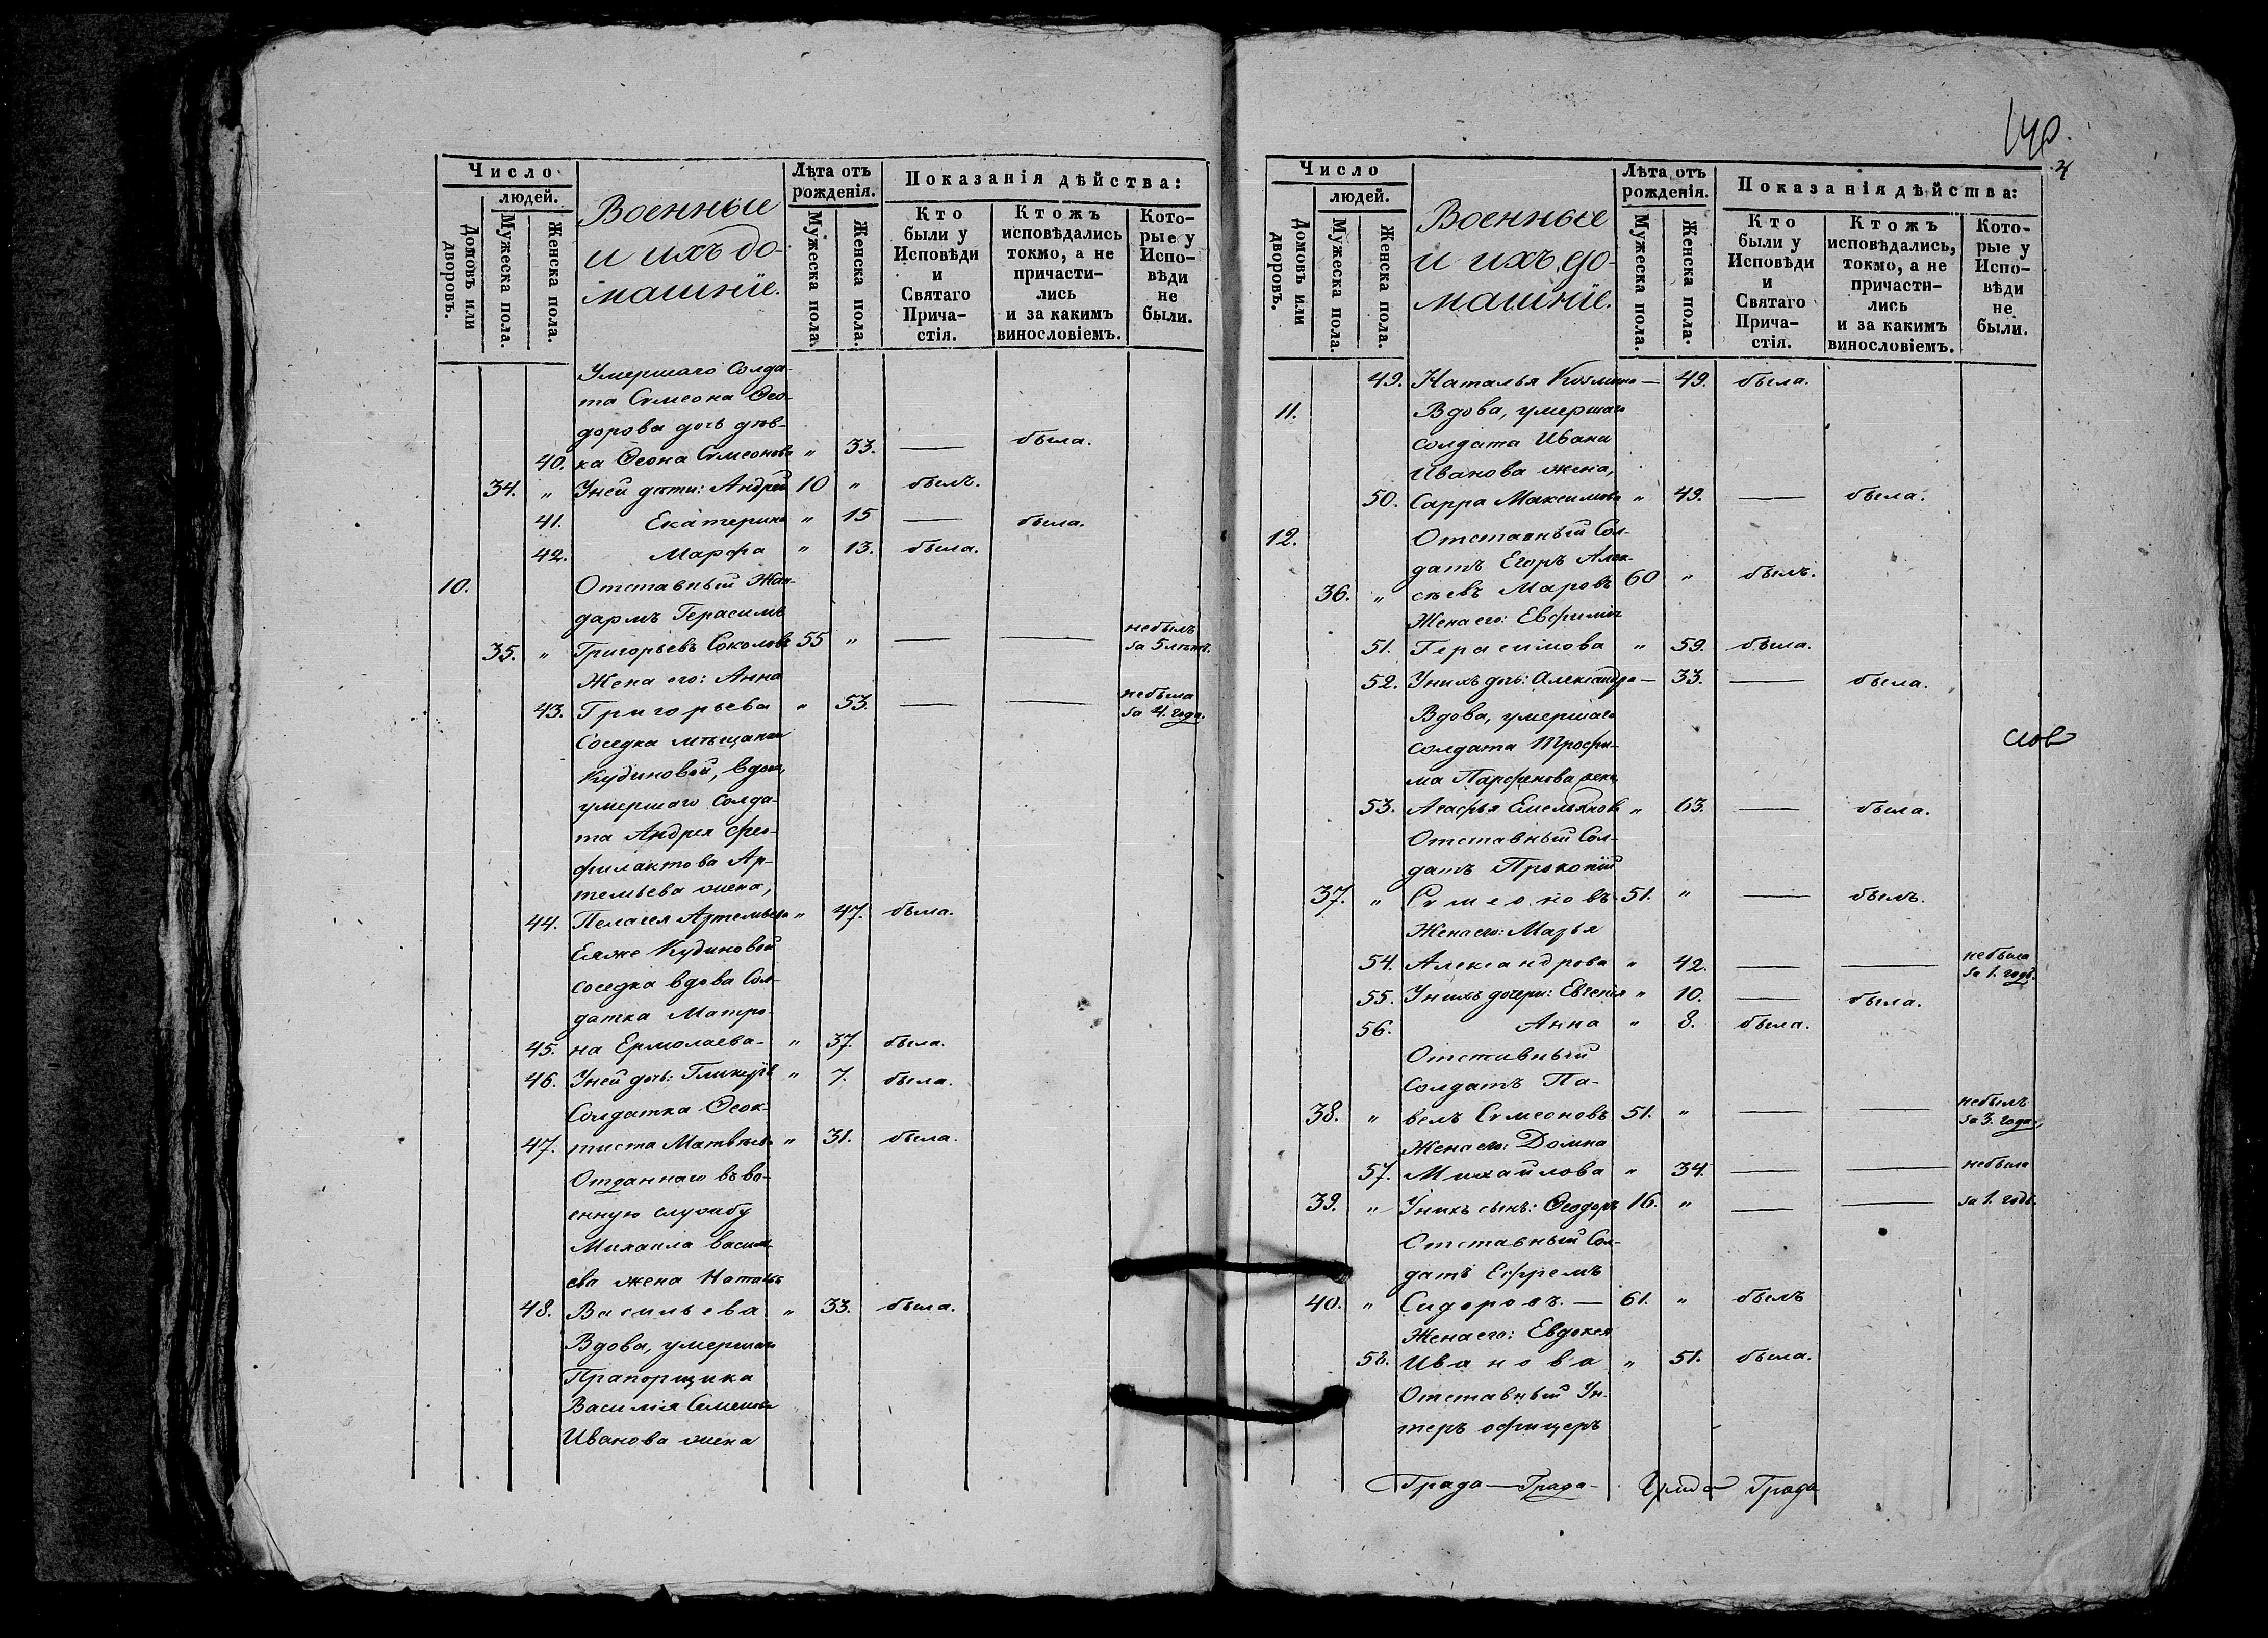 Число
людей.
Домовъ или дворовъ.
Мужеска пола.
Женска пола.
Военные
и ихъ до-
машніе.
Лѣта отъ
рожденія.
Мужеска пола.
Женска пола.
Показанія дѣйства:
Кто
были у
Исповѣди
и
Святаго
Прича-
стія.
Ктожъ
исповѣдались
токмо, а не
причасти-
лись
и за какимъ
винословіемъ.
Кото-
рые у
Испо-
вѣди
не
были.
Умершаго Солда-
та Сѵмеона Ѳео-
дорова дочь дѣв-
40. ка Ѳеона Сѵмеонова " 33. — была.
34. " У ней дѣти: Андрей 10 " былъ.
41. Екатерина " 15 — была.
42. Марфа " 13. была.
10. Отставный Жан-
дармъ Герасимъ
35. " Григорьевъ Соколовъ 55 " — — небылъ за 5 лѣтъ.
Жена его: Анна
43. Григорьева " 53. — — небыла за 4. года.
Соседка мѣщанки
Кудиновой, вдова,
умершаго Солда-
та Андрея Фео-
филактова Ар-
темьева жена,
44. Пелагея Артемьева " 47. была.
Еяже Кудиновой
соседка вдова Сол-
датка Матро-
45. на Ермолаева - " 37. была.
46. У ней дочь: Гликерія " 7. была.
Солдатка Ѳеок-
47. тиста Матвѣева " 31. была.
Отданнаго въ во-
енную службу
Михаила Василь-
ева жена Наталья
48. Васильева " 33. была.
Вдова, умершаго
Прапорщика
Василія Семенова
Иванова жена
140.
Число
людей.
Домовъ или дворовъ.
Мужеска пола.
Женска пола.
Военные
и ихъ до-
машніе.
Лѣта отъ
рожденія.
Мужеска пола.
Женска пола.
Показанія дѣйства:
Кто
были у
Исповѣди
и
Святаго
Прича-
стія.
Ктожъ
исповѣдались,
токмо, а не
причасти-
лись
и за какимъ
винословіемъ.
Кото-
рые у
Испо-
вѣди
не
были.
49. Наталья Козмина — 49. была.
11. Вдова, умершаго
солдата Ивана
Иванова жена,
50. Сарра Максимова " 49. — была.
12. Отставный Сол-
датъ Егоръ Алек-
36. " сѣевъ Маровъ 60 " былъ.
Жена его: Евфимія
51. Герасимова " 59. была.
52. У нихъ дочь: Александра — 33. — была.
Вдова, умершаго
солдата Трофи-
ма Парфенова жена,
53. Агафья Емельянова " 63. — была.
Отставный Сол-
датъ Прокопій
37. " Сѵмеоновъ 51. " — былъ.
Жена его: Марья
54. Александрова " 42. — — небыла за 1. годъ.
55. У нихъ дочери: Евгенія " 10. — была.
56. Анна " 8. была.
Отставный
Солдатъ Па-
38. " велъ Сѵмеоновъ 51. " — — небылъ за 3. года,
Жена его: Домна
57. Михайлова " 34. — — небыла
39. " У нихъ сынъ: Ѳеодоръ 16. " — — за 1. годъ.
Отставный Сол-
датъ Ефремъ
40. " Сидоровъ. — 61. " былъ
Жена его: Евдокея
58. Иванова " 51. была.
Отставный Ун-
теръ офицеръ
Града — Града - Града Града